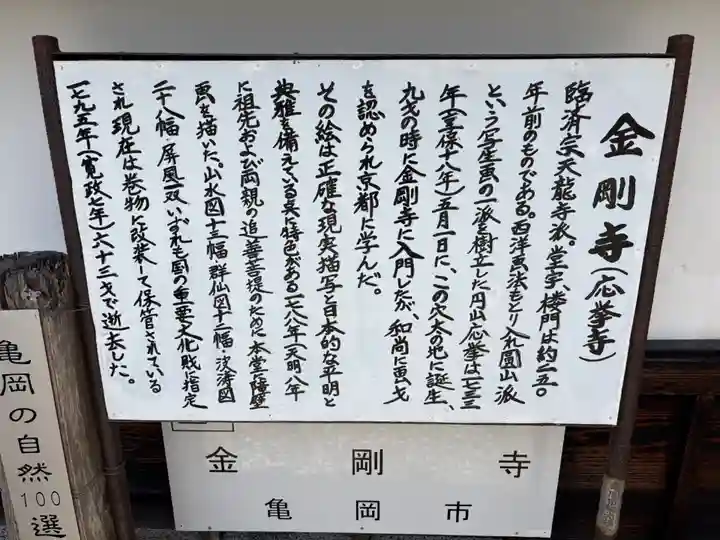 金剛寺(応挙寺)
臨済宗天龍寺派。堂宇、楼門は約二五〇
年前のものである。西洋画法もとり入れ圓山派
という写生画の一派を樹立した円山応挙は一七三三
年(享保十八年)五月一日に、この穴太の地に誕生、
九才の時に金剛寺に入門したが、和尚に画才
を認められ京都に学んだ。
その絵は正確な現実描写と日本的な平明と
典雅を備えている点に特色がある一七八八年(天明八年)
に祖先および両親の追善菩提のために本堂一障壁
画を描いた。山水図十三幅・群仙図十二幅・波濤図
二十八幅・屏風一双いずれも国の重要文化財に指定
され現在は巻物に改装して保管されている
一七九五年(寛政七年)六十三才で逝去した。
金剛寺
亀岡市
亀岡の自然
100
選